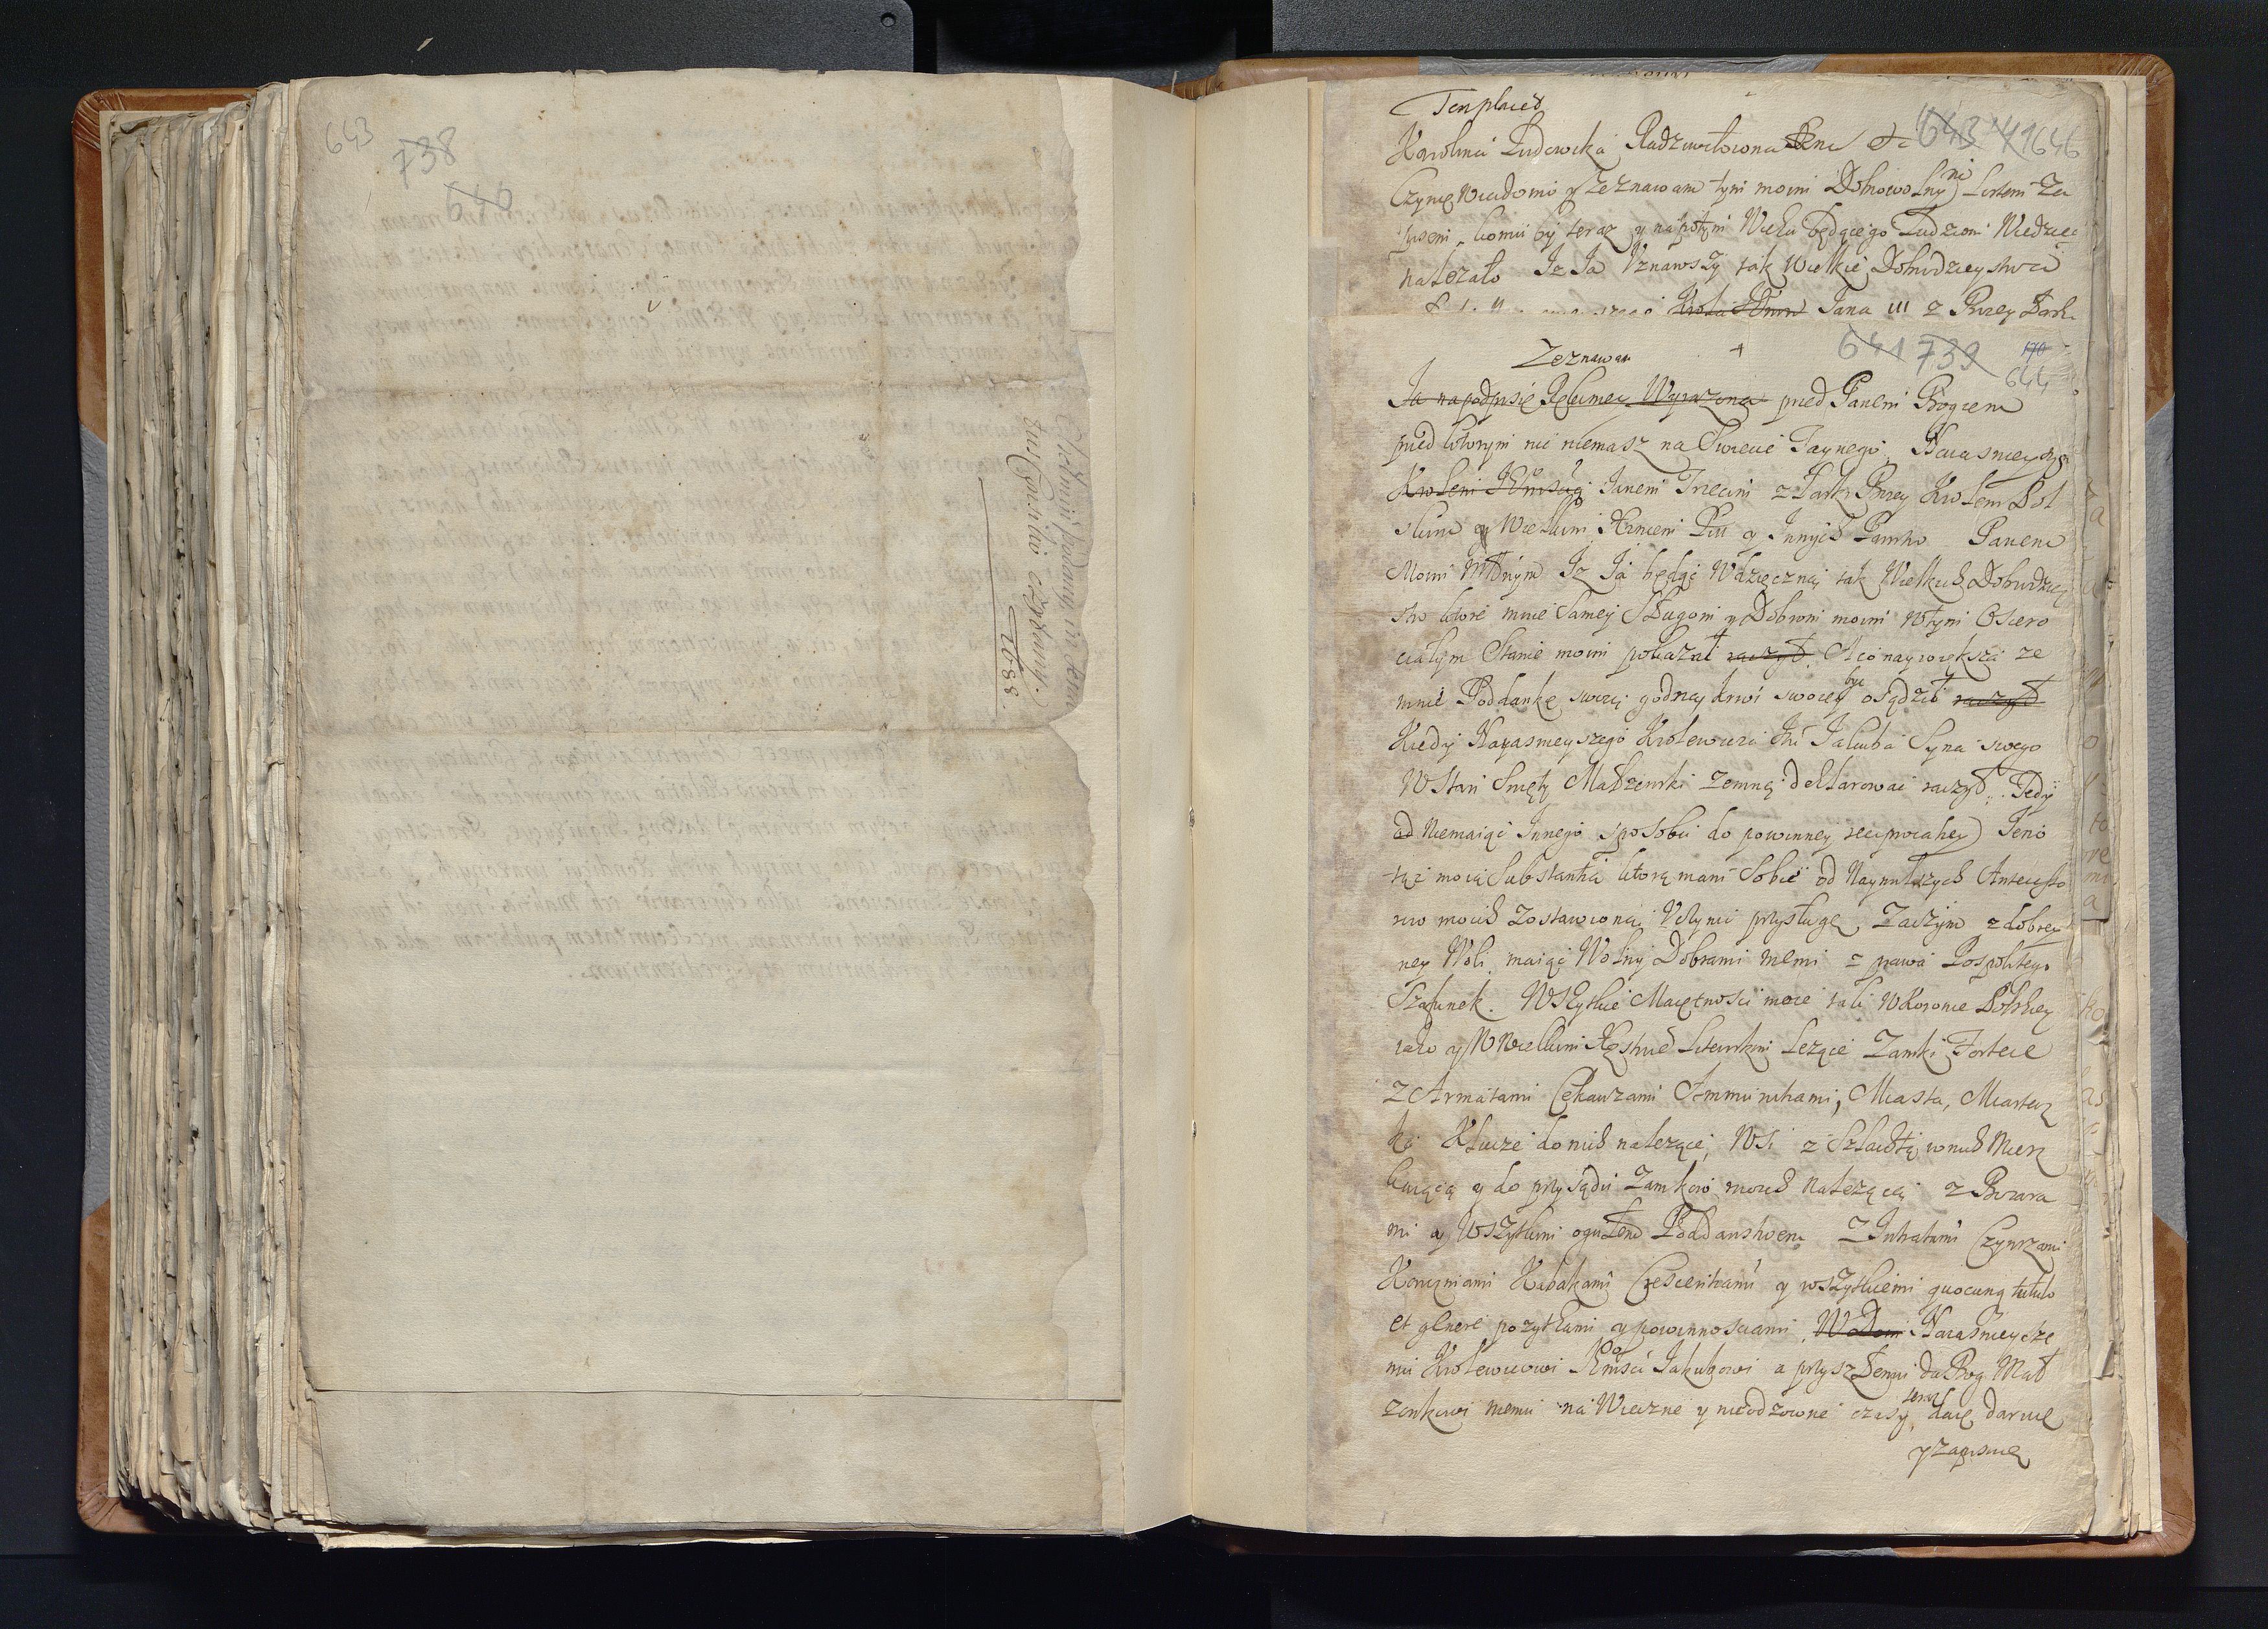 643
738
646
Skrypt podany in Sena
tus Consilio czytany.
1688.
Ten placet
Karolina Ludowika Radziwiłowna Xna etc
643 741 646
Czynię Wiadomo y zeznawam tym moim Dobrowolnym Listem Za
pisem, komu by teraz y napotym Wieku będącego Ludziom Wiedziec
nalezało Iz Ia Vznawszy tak Wielkie Dobrodzieystwa
Jana III z Bozey Łaski
Zeznawam
641 739 170
644
Ia na podpisie Ręku mey Wyrazona przed Panem Bogiem
przed ktorym nic niemasz na Swiecie Taynego, Naiasnieyszym
Krolem JEmscią Janem Trzecim z Łaski Bozey Krolem Pol
skim y Wielkim Xciem Litt y Innych Panstw Panem
Moim Młnym Iz Ia będąc Wdzięczną tak Wielkich Dobrodziey
stw ktore mnie Samey Sługom y Dobrom moim wtym Osiero
ciałym Stanie moim pokazał raczył, A co naywiększa ze
mnie Poddankę swoię godney krwi swoiey byc osądził raczył
Kiedy Nayasnieyszego Krolewica Jmci Jakuba Syna swego
W Stan Swięty Małzenski zemną deklarowac raczył, Tedy
ad Niemaiąc Innego sposobu do powinney reciprocatiey Teno
tąz moią Substantią ktorą mam Sobie od Naymilszych Antecesso
row moich zostawioną, Vczynic przysługę, Zaczym z dobrey
mey Woli, maiąc Wolny Dobrami memi z prawa Pospolitego
Szafunek. Wszytkie Maiętnosci moie tak w Koronie Polskiey
iako y W Wielkim Xięstwie Litewskim Lezące Zamki Fortece
z Armatami Cekauzami Ammunitiami, Miasta, Miastecz
ka Klucze do nich nalezące, Wsi z Szlachtą w nich Miesz
kaiącą y do przysądu Zamkow moich Nalezącą z Boiara
mi y Wszytkim ogułem Poddanstwem z Intratami Czynszami
Karczmami Kabakami Crescentiami y wszytkiemi quocunq titulo
et genere pozytkami y powinnosciami, Wodom Naiasnieysze
mu Krolewicowi JEgo Mosci Jakubowi a przyszłemu da Bog Mał
zonkowi memu na Wieczne y nieodzowne czasy, teraz daię daruię
y Zapisuię